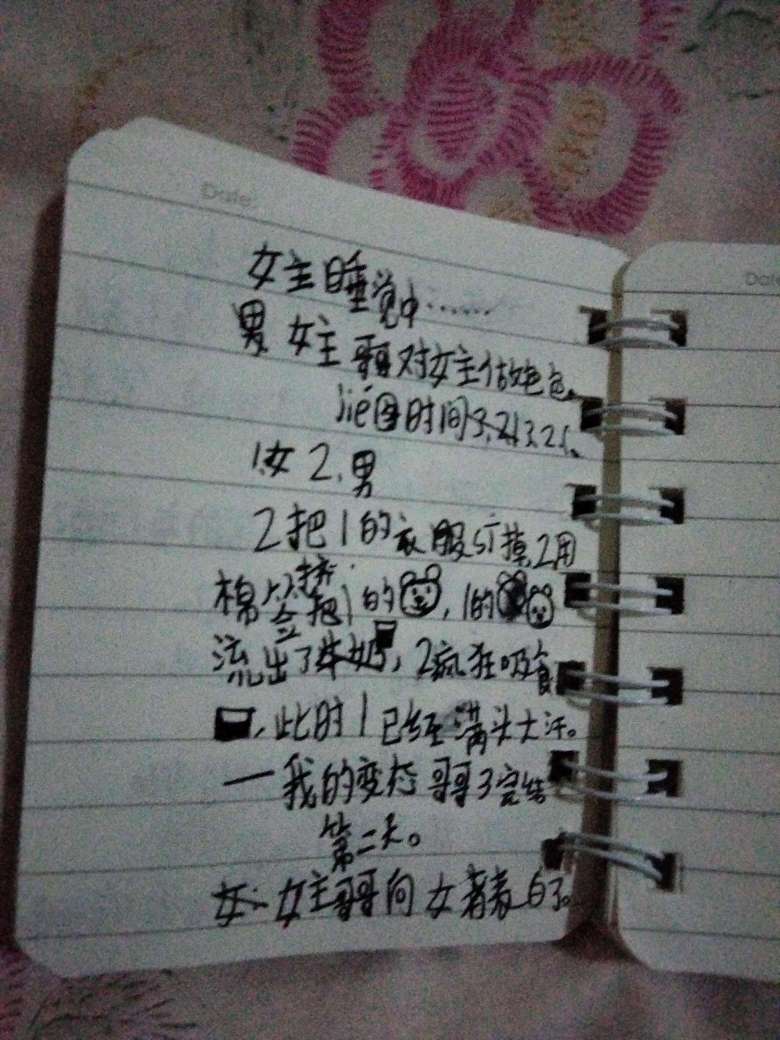 Date:
女主睡觉中……
男女主哥对女主做色色。
jié图时间3.2
1.女 2.男
2把1的衣服
棉签把1的, 1的
流出了牛奶, 2疯狂吸食
,此时1已经满头大汗。
一我的变态哥哥3完结
第二天。
女:女主哥哥向女表白了。